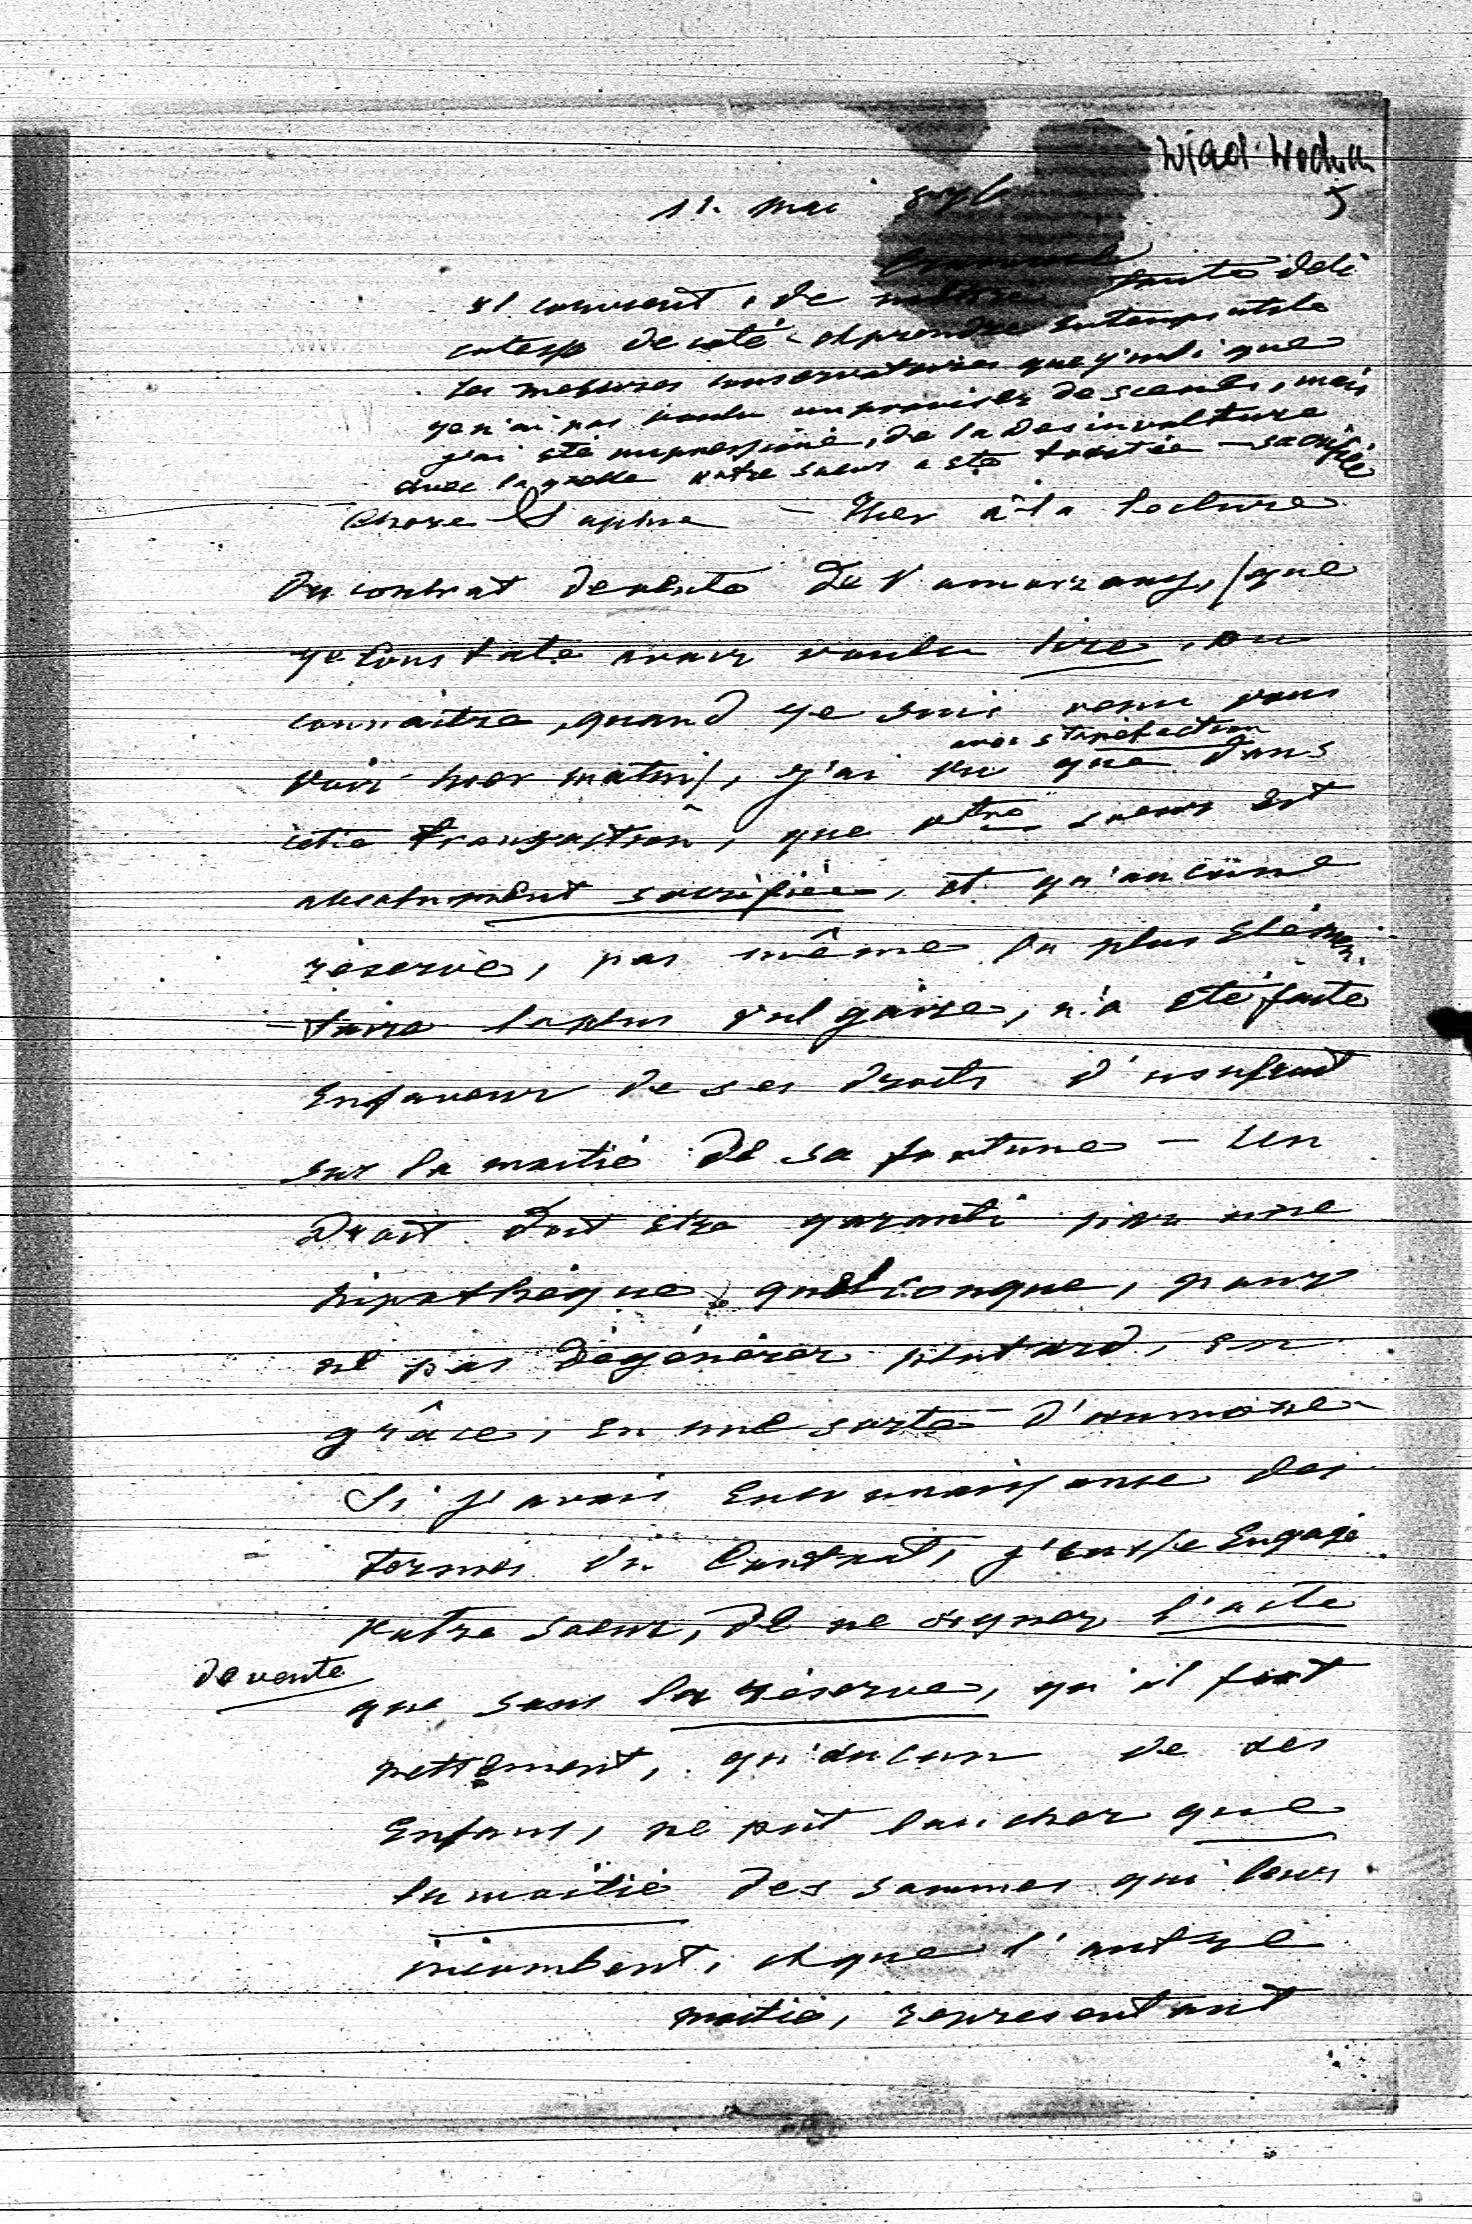 11. mai
5
Il convient, de mettre toute déli
catesse de coté - et prendre en temps utile
les mesures conservatoires que j'indique
je n'ai pas voulu improviser de scandl, mais
j'ai été impressioné, de la desinvolture
avec laquelle votre soeur a été traitée - sacrifiée
Chere Saphie - Hier à la lecture
Du contrat de vente de (que
je constate avoir voulu lire, ou
connaitre, quand je suis venu vous
avec stupéfaction
voir hier matin), j'ai vu que dans
cette transaction, que vtre soeur est
absolument sacrifiée, et qu'aucune
réserve, pas même la plus élémen-
taire la plus vulgaire, n'a été faite
En faveur de ses droits d'usufruit
sur la moitié de sa fortune - Un
Droit doit etre garanti par une
hipothèque quelconque, pour
ne pas dégénérer plutard, en
grâce, en une sorte d'aumone -
Si j'avais eu connaissance des
termes du Contrat, j'eusse Engagé
Votre Soeur, de ne signer l'acte
de vente
que sous la réserve, qu'il fut
nettement, qu'aucun de ses
Enfans, ne pût toucher que
la moitié des sommes qui leur
incombent, et que l'autre
moitié, representant